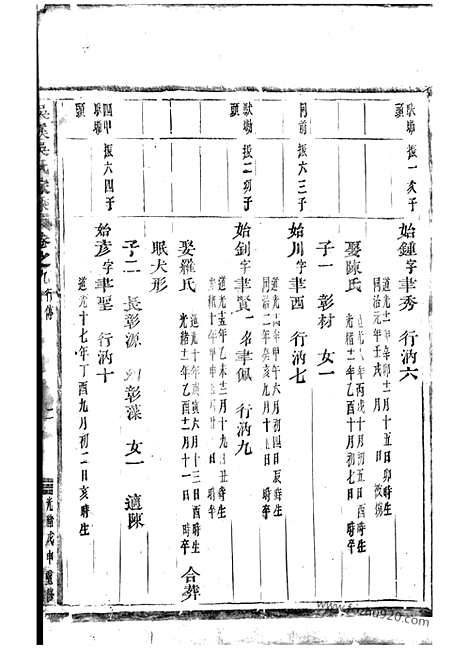 馱塘頭 振一亥子
始鍾字聿秀 行汭六
道光十一年辛卯十二月十五日卯時生
同治元年壬戌 月 日 被擄
娶陳氏
年丙戌十月初五日酉時生
光緒十一年乙酉十月初七日 時卒
子一 彰材 女一
同前 振六三子
始川字聿酉 行汭七
道光十四年甲午六月初四日辰時生
同治二年癸亥九月十五日 時卒
馱塘頭 振二初子
始釗字聿賢 名聿佩 行汭九
道光十五年乙未十二月十九日丑時生
娶羅氏
道光十年庚寅六月十三日酉時生
光緒十一年乙酉十二月十一日 時卒
合葬
眠犬形
子二 長彰源 幼彰藻 女一 適陳
四甲馱塘頭 振六四子
始彥字聿聖 行汭十
道光十七年丁酉九月初二日亥時生
吳溪吳氏家乘 卷之九 行傳
光緒戊申重修
www.fzjzhu920.com